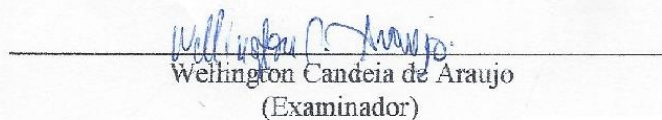 Wellington C. Araujo
Wellington Candeia de Araujo
(Examinador)